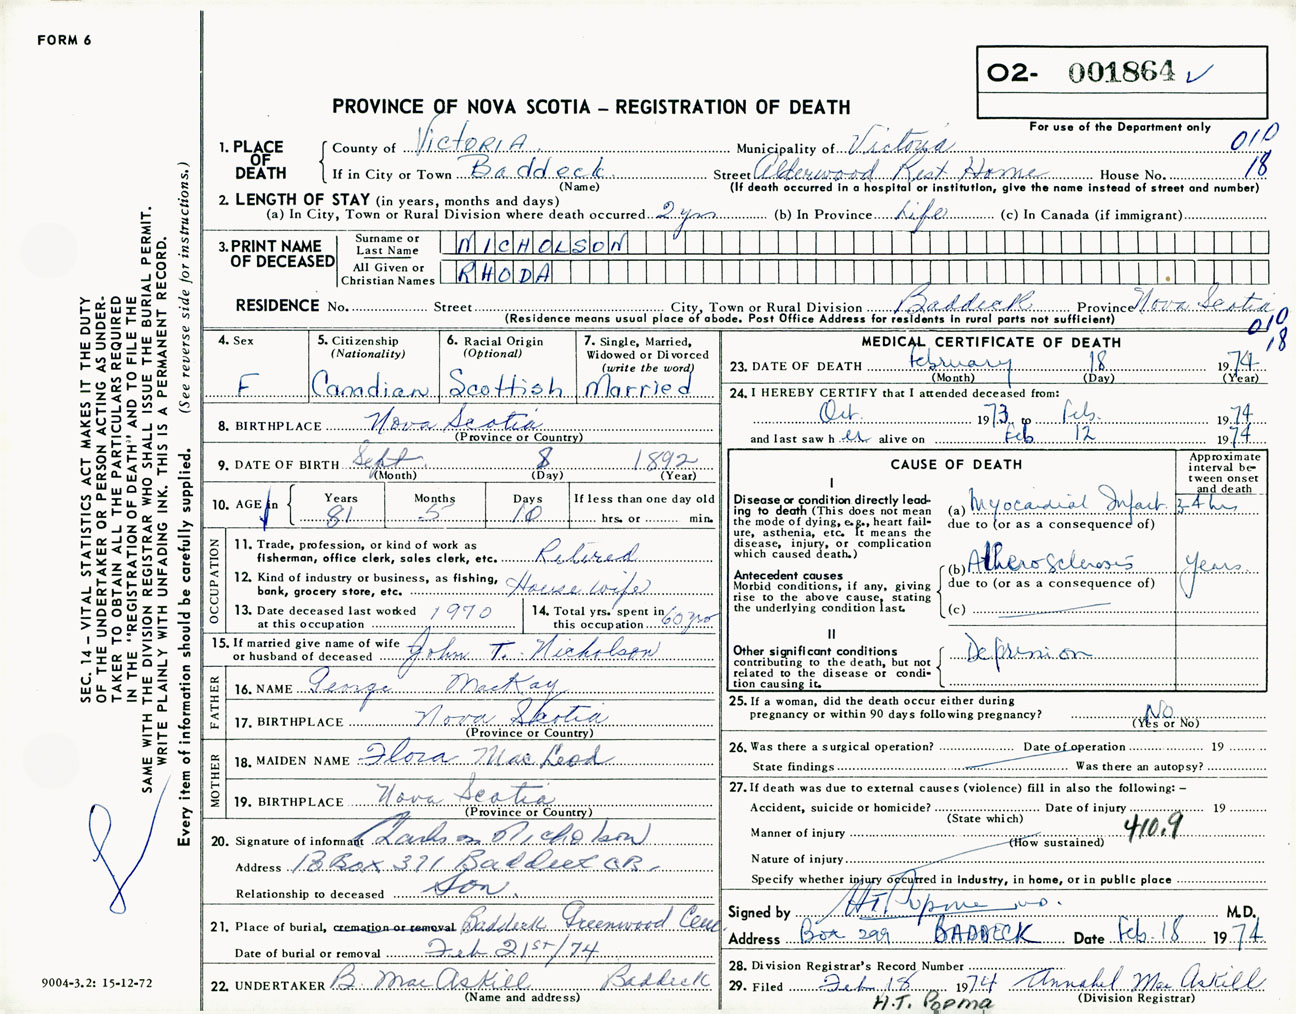 FORM 6
O2- 001864
PROVINCE OF NOVA SCOTIA – REGISTRATION OF DEATH
For use of the Department only
1. PLACE OF DEATH
County of Victoria
Municipality of Victoria
010
If in City or Town Baddeck
(Name)
Street Alderwood Rest Home House No.
18
(If death occurred in a hospital or institution, give the name instead of street and number)
2. LENGTH OF STAY (in years, months and days)
(a) In City, Town or Rural Division where death occurred 2 yrs (b) In Province Life (c) In Canada (if immigrant)
3. PRINT NAME OF DECEASED
Surname or Last Name NICHOLSON
All Given or Christian Names RHODA
RESIDENCE No. Street City, Town or Rural Division Baddeck Province Nova Scotia
(Residence means usual place of abode. Post Office Address for residents in rural parts not sufficient)
010
18
4. Sex
F
5. Citizenship
(Nationality)
Canadian
6. Racial Origin
(Optional)
Scottish
7. Single, Married,
Widowed or Divorced
(write the word)
Married
8. BIRTHPLACE Nova Scotia
(Province or Country)
9. DATE OF BIRTH Sept. 8 1892
(Month) (Day) (Year)
10. AGE in
Years Months Days If less than one day old
81 5 10 hrs. or min.
OCCUPATION
11. Trade, profession, or kind of work as
fisherman, office clerk, sales clerk, etc. Retired
12. Kind of industry or business, as fishing,
bank, grocery store, etc. Housewife
13. Date deceased last worked
at this occupation 1970
14. Total yrs. spent in
this occupation 60 yrs
15. If married give name of wife
or husband of deceased John T. Nicholson
FATHER
16. NAME George MacKay
17. BIRTHPLACE Nova Scotia
(Province or Country)
MOTHER
18. MAIDEN NAME Flora MacLeod
19. BIRTHPLACE Nova Scotia
(Province or Country)
20. Signature of informant Nicholson
Address Box 371 Baddeck CB.
Relationship to deceased Son
21. Place of burial, cremation or removal Baddeck Greenwood Cem
Date of burial or removal Feb 21st/74
22. UNDERTAKER B. MacAskill Baddeck
(Name and address)
MEDICAL CERTIFICATE OF DEATH
23. DATE OF DEATH February 18 1974
(Month) (Day) (Year)
24. I HEREBY CERTIFY that I attended deceased from:
Oct. 1973 to Feb. 1974
and last saw her alive on Feb 12 1974
CAUSE OF DEATH
Approximate
interval be-
tween onset
and death
I
Disease or condition directly lead-
ing to death (This does not mean
the mode of dying, e.g., heart fail-
ure, asthenia, etc. It means the
disease, injury, or complication
which caused death.)
(a) Myocardial Infarct. 3-4 hrs
due to (or as a consequence of)
Antecedent causes
Morbid conditions, if any, giving
rise to the above cause, stating
the underlying condition last.
(b) Atherosclerosis years.
due to (or as a consequence of)
(c)
II
Other significant conditions
contributing to the death, but not
related to the disease or condi-
tion causing it.
Depression
25. If a woman, did the death occur either during
pregnancy or within 90 days following pregnancy? No
(Yes or No)
26. Was there a surgical operation? Date of operation 19
State findings Was there an autopsy?
27. If death was due to external causes (violence) fill in also the following: –
Accident, suicide or homicide? Date of injury 19
(State which)
410.9
Manner of injury
(How sustained)
Nature of injury
Specify whether injury occurred in industry, in home, or in public place
Signed by H.T. Popma M.D.
Address Box 299 BADDECK Date Feb. 18 1974
28. Division Registrar's Record Number
29. Filed Feb 18 1974 Annabel MacAskill
(Division Registrar)
H.T. Popma
SEC. 14 – VITAL STATISTICS ACT MAKES IT THE DUTY
OF THE UNDERTAKER OR PERSON ACTING AS UNDER-
TAKER TO OBTAIN ALL THE PARTICULARS REQUIRED
IN THE "REGISTRATION OF DEATH" AND TO FILE THE
SAME WITH THE DIVISION REGISTRAR WHO SHALL ISSUE THE BURIAL PERMIT.
WRITE PLAINLY WITH UNFADING INK. THIS IS A PERMANENT RECORD.
Every item of information should be carefully supplied. (See reverse side for instructions.)
9004-3.2: 15-12-72